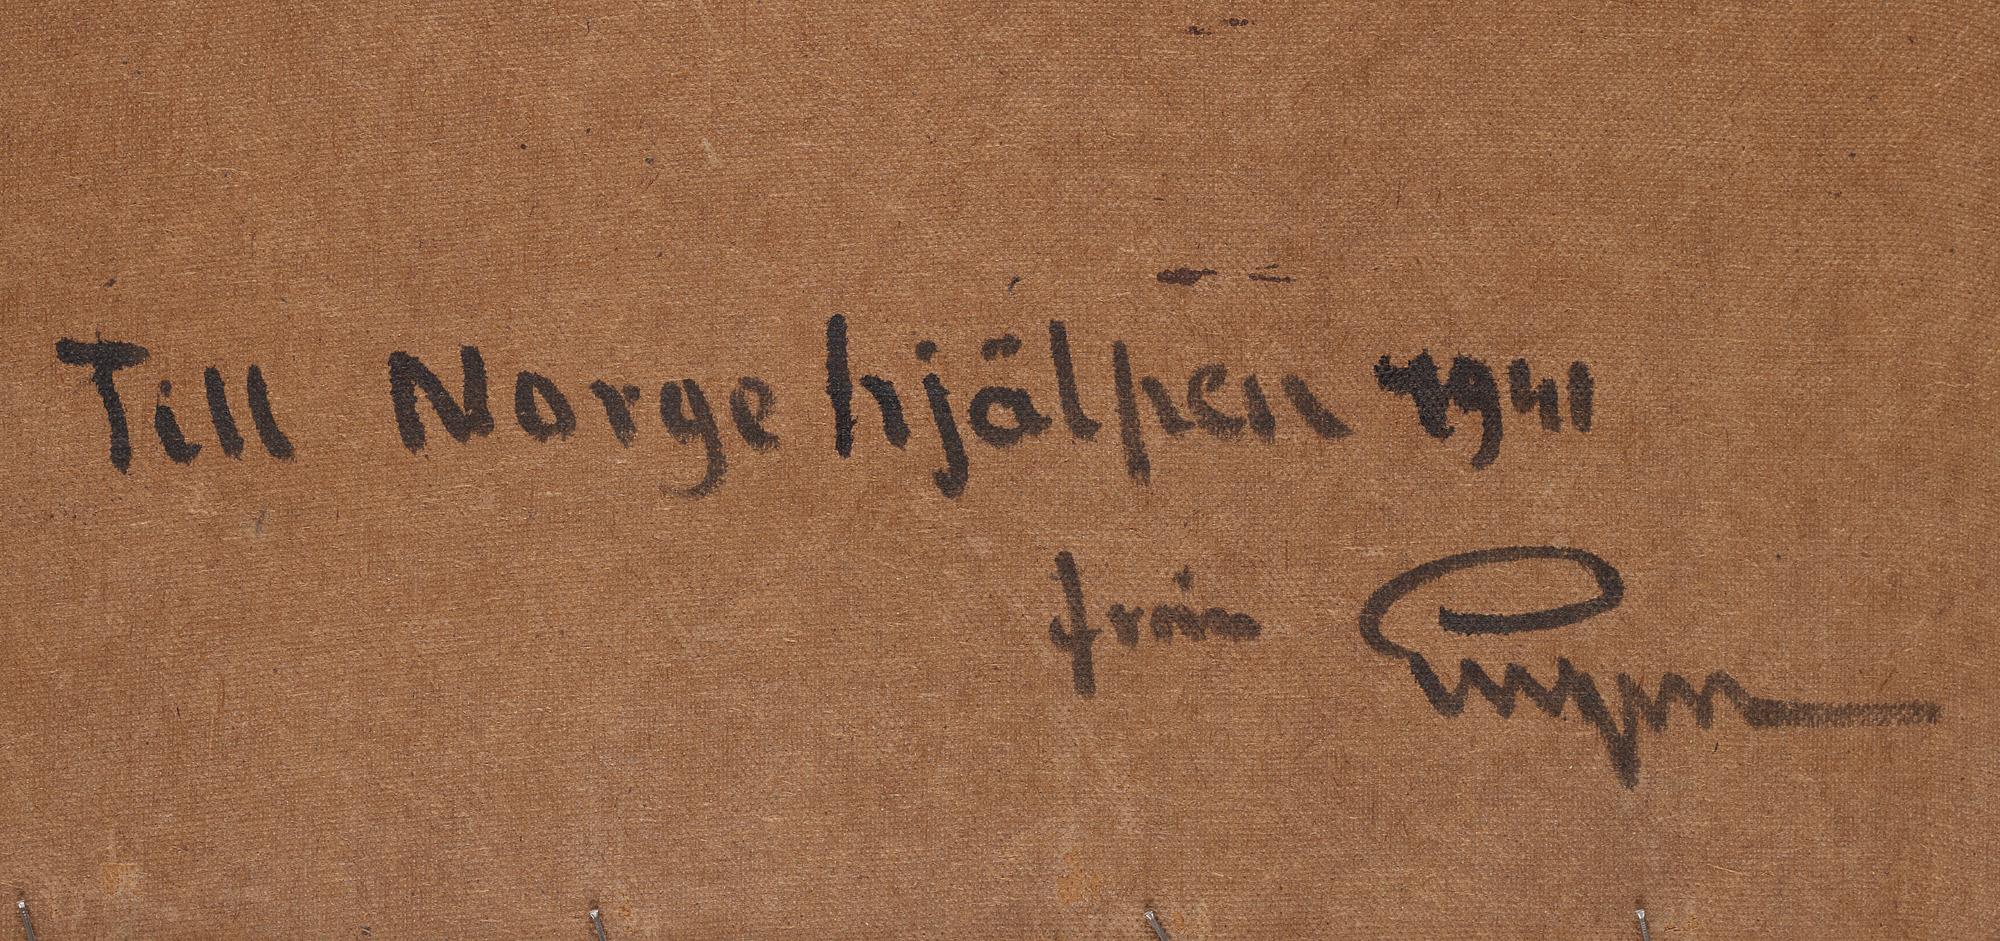 Till Norgehjälpen 1941
från